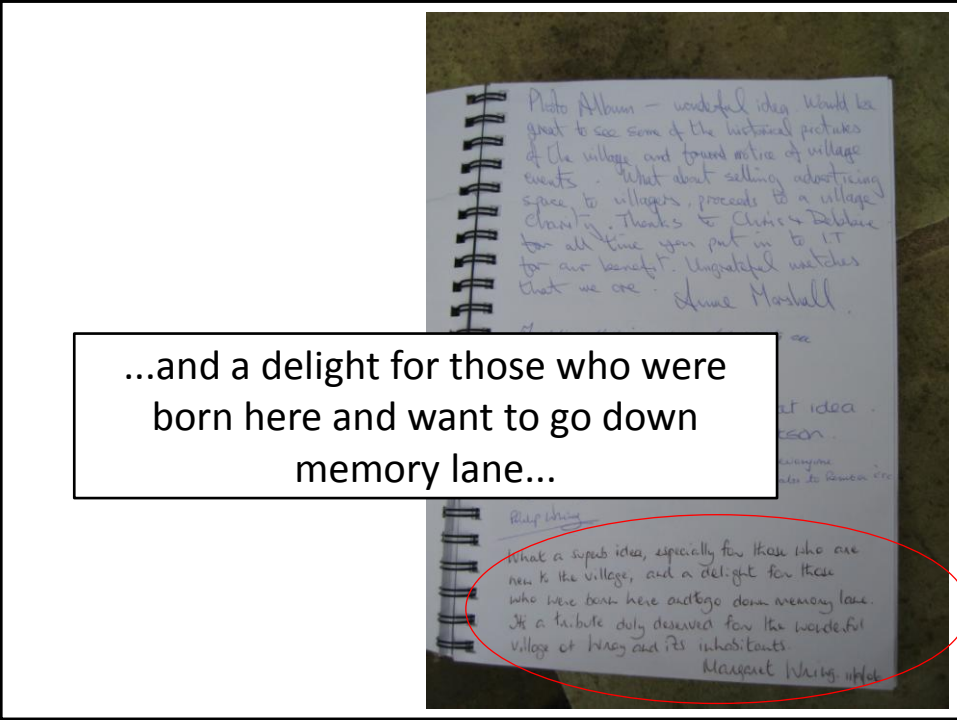 Photo Album – wonderful idea. Would be
great to see some of the historical pictures
of the village and forward notice of village
events. What about selling advertising
space to villagers, proceeds to a village
charity. Thanks to Chris + Debbie
for all time you put in to IT
for our benefit. Ungrateful wretches
that we are. Anne Marshall.
...and a delight for those who were
born here and want to go down
memory lane...
idea.
everyone
Philip Wring
What a superb idea, especially for those who are
new to the village, and a delight for those
who were born here and to go down memory lane.
It's a tribute duly deserved for the wonderful
village of Wray and its inhabitants.
Margaret Wring